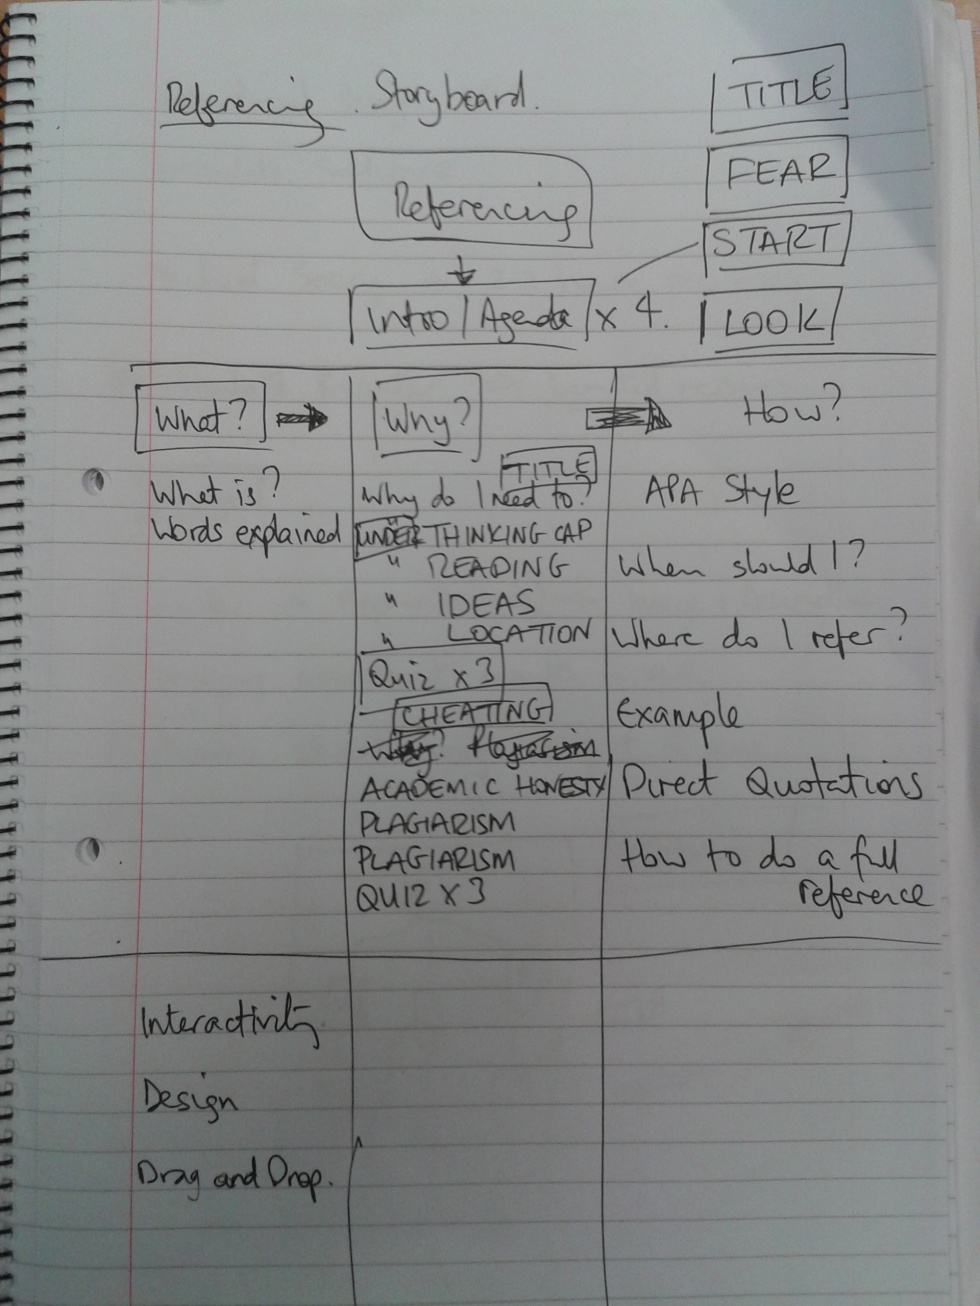 Referencing. Storyboard.
TITLE
FEAR
Referencing
START
Intro/Agenda x 4.
LOOK
What?
Why?
How?
What is?
Words explained
TITLE
Why do I need to?
UNDER THINKING CAP
" READING
" IDEAS
" LOCATION
Quiz x 3
CHEATING
Why? Plagiarism
ACADEMIC HONESTY
PLAGIARISM
PLAGIARISM
QUIZ x 3
APA Style
When should I?
Where do I refer?
Example
Direct Quotations
How to do a full
reference
Interactivity
Design
Drag and Drop.